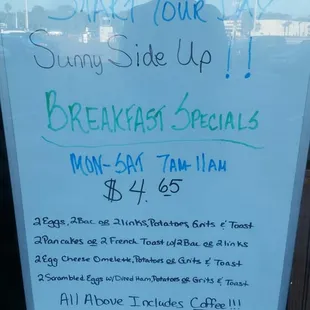 START YOUR DAY
Sunny Side Up !!
BREAKFAST SPECIALS
MON-SAT 7AM-11AM
$4.65
2 Eggs, 2 Bac or 2 links, Potatoes, Grits & Toast
2 Pancakes or 2 French Toast w/2 Bac or 2 links
2 Egg Cheese Omelette, Potatoes or Grits & Toast
2 Scrambled Eggs w/ Diced Ham, Potatoes or Grits & Toast
All Above Includes Coffee!!!